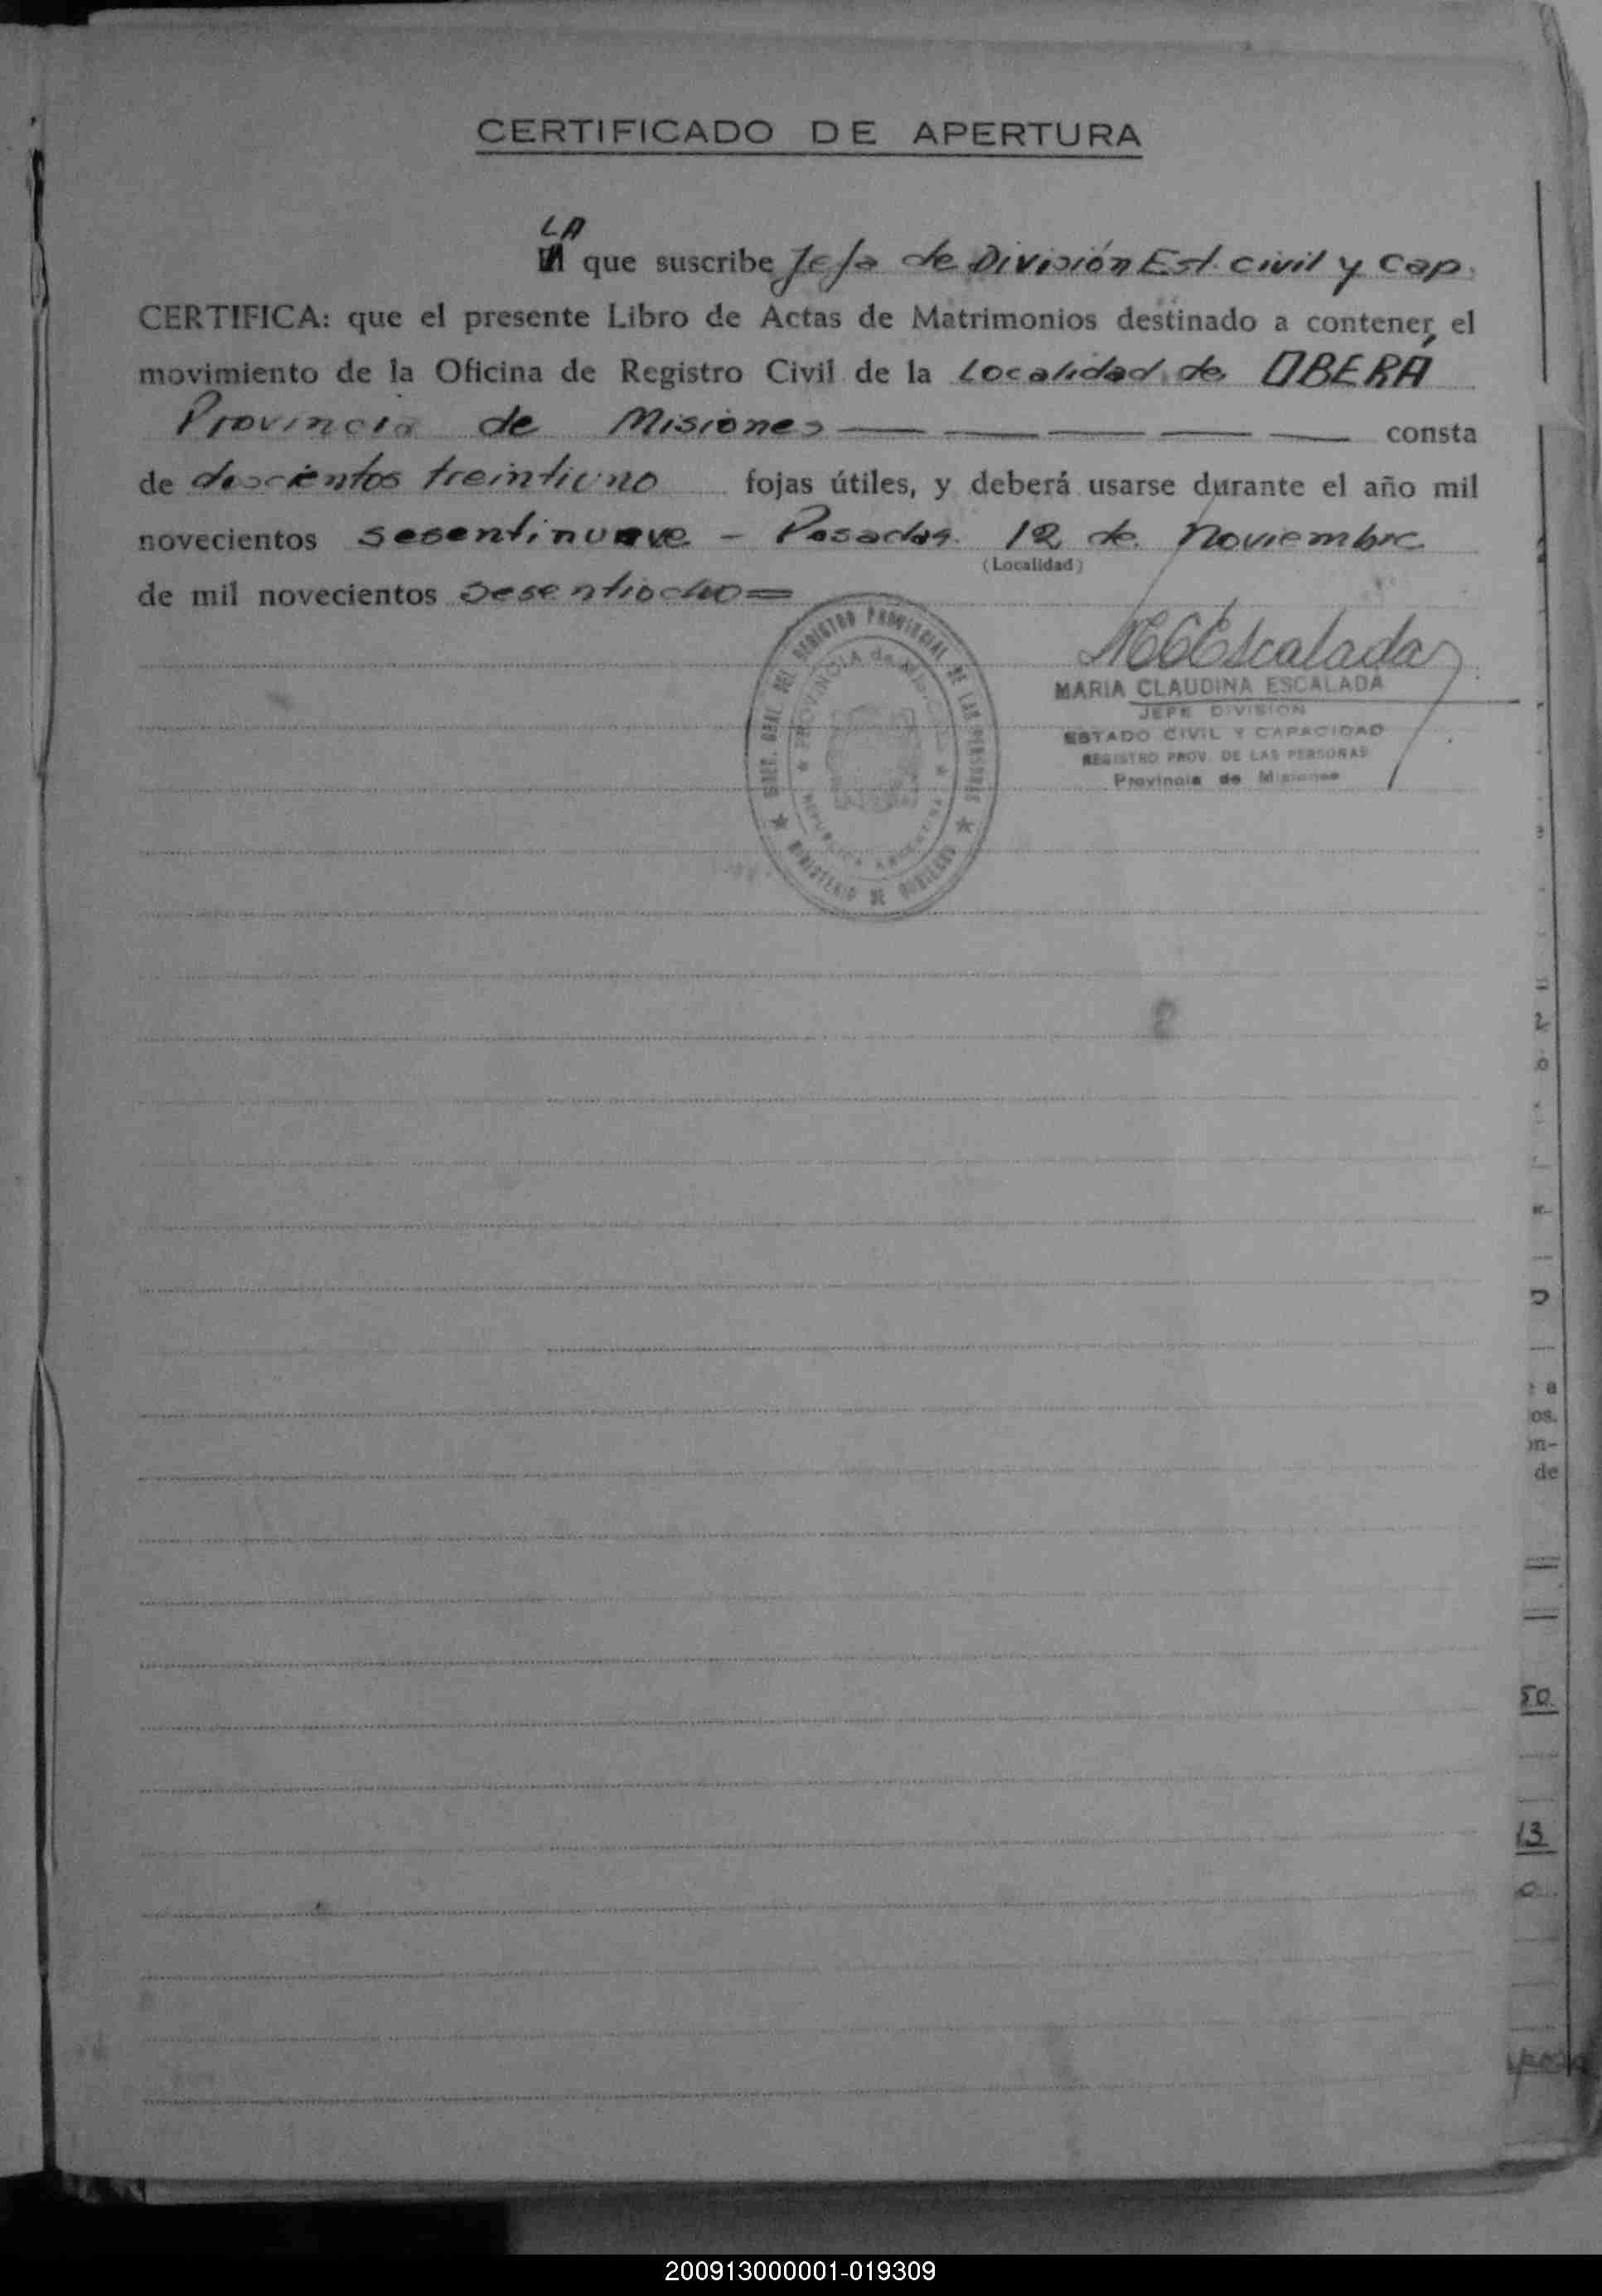 CERTIFICADO DE APERTURA
LA
que suscribe Jefa de División Est. civil y Cap.
CERTIFICA: que el presente Libro de Actas de Matrimonios destinado a contener el
movimiento de la Oficina de Registro Civil de la Localidad de OBERÁ
Provincia de Misiones — — — — — consta
de doscientos treintiuno fojas útiles, y deberá usarse durante el año mil
novecientos sesentinueve - Posadas 12 de Noviembre
(Localidad)
de mil novecientos sesentiocho =
DIREC. GRAL. DEL REGISTRO PROVINCIAL DE LAS PERSONAS
PROVINCIA de Misiones
REPUBLICA ARGENTINA
MINISTERIO DE GOBIERNO
MCEscalada
MARIA CLAUDINA ESCALADA
JEFE DIVISION
ESTADO CIVIL Y CAPACIDAD
REGISTRO PROV. DE LAS PERSONAS
Provincia de Misiones
a
os.
on-
de
50
13
0
200913000001-019309